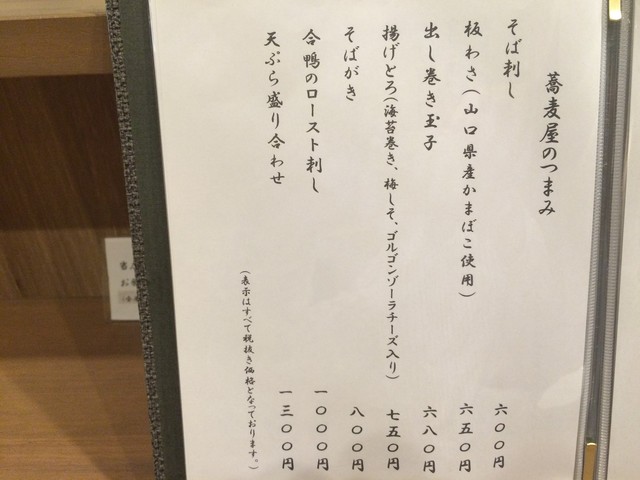 蕎麦屋のつまみ
そば刺し 六〇〇円
板わさ(山口県産かまぼこ使用) 六五〇円
出し巻き玉子 六八〇円
揚げとろ(海苔巻き、梅しそ、ゴルゴンゾーラチーズ入り) 七五〇円
そばがき 八〇〇円
合鴨のロースト刺し 一〇〇〇円
天ぷら盛り合わせ 一三〇〇円
(表示はすべて税抜き価格となっております。)